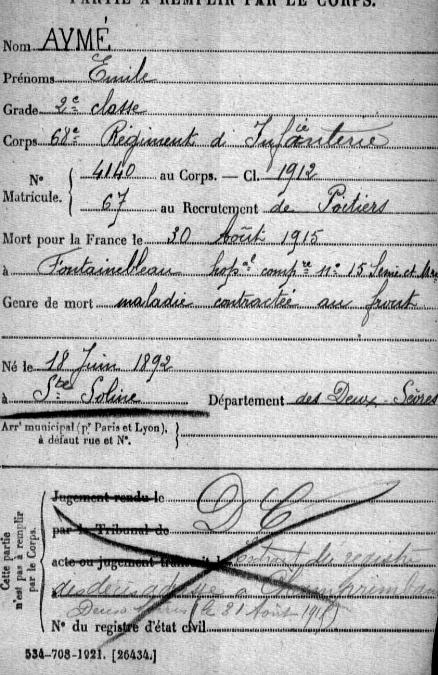 PARTIE À REMPLIR PAR LE CORPS.
Nom AYMÉ
Prénoms Emile
Grade 2e classe
Corps 68e Régiment d'Infanterie
No Matricule. 4140 au Corps. — Cl. 1912
67 au Recrutement de Poitiers
Mort pour la France le 30 Août 1915
à Fontainebleau hopal compre no 15 Seine et Mne
Genre de mort maladie contractée au front
Né le 18 Juin 1892
à Ste Soline Département des Deux-Sèvres
Arrt municipal (pr Paris et Lyon), à défaut rue et No.
Cette partie n'est pas à remplir par le Corps.
Jugement rendu le
par le Tribunal de DC
acte ou jugement transcrit le extrait de registre
des
Deux le 31 Août
No du registre d'état civil
534-708-1921. [26434.]